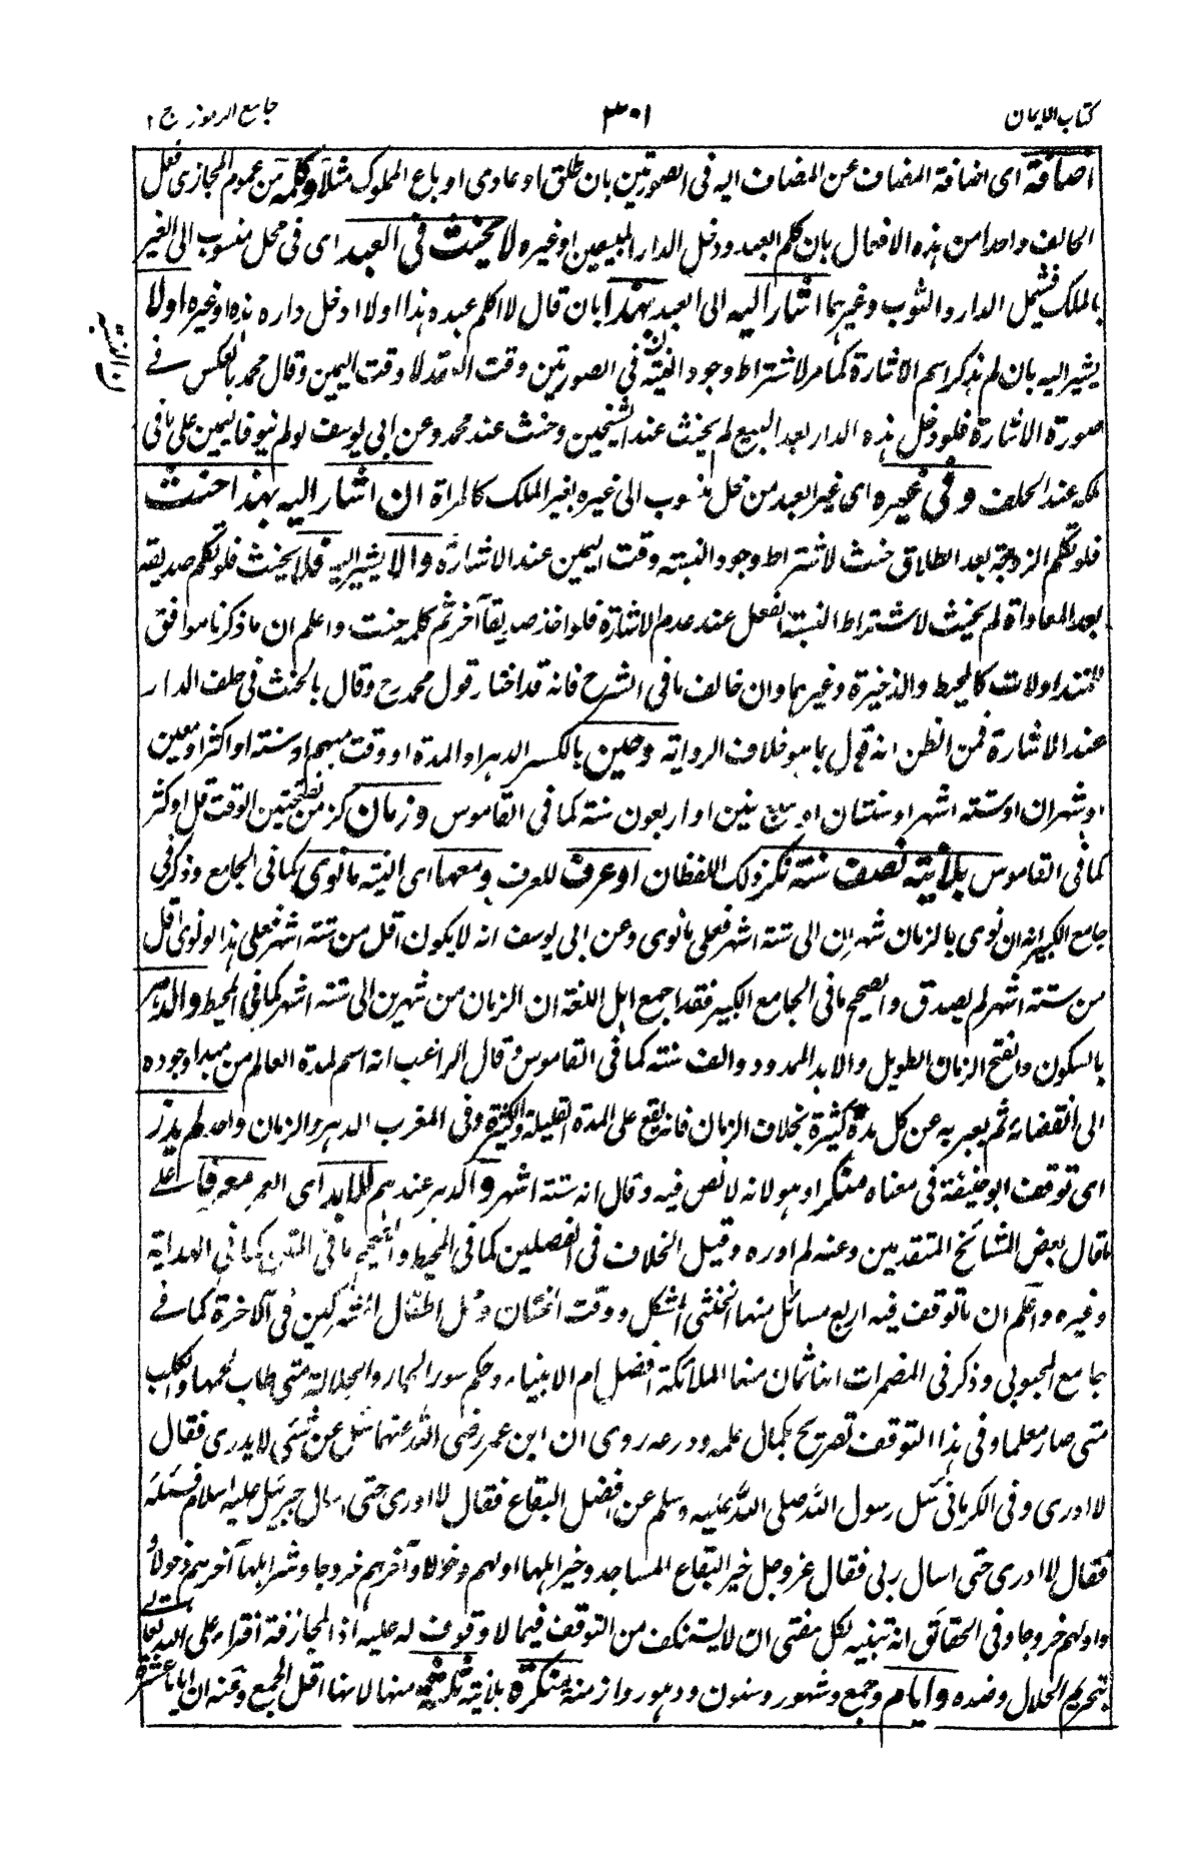 كتاب الايمان ٣٠١ جامع الرموز ج ٢
اضافة اى اضافة المضاف عن المضاف اليه فى الصورتين بان طلق او عادى او باع المملوك مثلا وكلمة من عموم المجازى فعل
الحالف واحدا من هذه الافعال بان كلم العبد ودخل الدار المبيعين او غيره لا يحنث فى العبد اى فى محل منسوب الى الغير
بالملك فيشمل الدار والثوب وغيرهما اشار اليه الى العبد بهذا بان قال لا اكلم عبده هذا اولا ادخل داره هذه او غيره اولا
يشير اليه بان لم يذكر اسم الاشارة كما مر لاشتراط وجود النسبة فى الصورتين وقت الفعل لا وقت اليمين وقال محمد بالعكس فى
صورة الاشارة فلو دخل هذه الدار بعد البيع لم يحنث عند الشيخين وحنث عند محمد وعن ابى يوسف لو لم ينو فاليمين على ما فى
ملكه عند الحلف وفى غيره اى غير العبد من محل منسوب الى غيره بغير الملك كالمرأة ان اشار اليه بهذا حنث
فلو تكلم الزوجة بعد الطلاق حنث لاشتراط وجود النسبة وقت اليمين عند الاشارة والا يشير اليه فلا يحنث فلو تكلم صديقه
بعد المعاداة لم يحنث لاشتراط النسبة الفعل عند عدم الاشارة فلو اخذ صديقا آخر ثم كلمه حنث واعلم ان ما ذكرنا موافق
للمتداولات كالمحيط والذخيرة وغيرهما وان خالف ما فى الشرح فانه قد اختار قول محمد رح وقال بالحنث فى حلف الدار
عند الاشارة فمن الظن انه قول بما هو خلاف الرواية وحين بالكسر الدهر او المدة او وقت مبهم او سنة او اكثر او معين
او شهران او ستة اشهر او سنتان او سبع سنين او اربعون سنة كما فى القاموس وزمان كزمن بفتحتين الوقت قل او كثر
كما فى القاموس بلا نية نصف سنة نكر ذلك اللفظان او عرف للعرف ومعها اى النية ما نوى كما فى الجامع وذكر فى
جامع الكبير انه ان نوى بالزمان شهرين الى ستة اشهر فعلى ما نوى وعن ابى يوسف انه لا يكون اقل من ستة اشهر فعلى هذا لو نوى اقل
من ستة اشهر لم يصدق والصحيح ما فى الجامع الكبير فقد اجمع اهل اللغة ان الزمان من شهرين الى ستة اشهر كما فى المحيط والدهر
بالسكون والفتح الزمان الطويل والابد الممدود والف سنة كما فى القاموس وقال الراغب انه اسم لمدة العالم من مبدا وجوده
الى انقضائه ثم يعبر به عن كل مدة كثيرة بخلاف الزمان فانه يقع على المدة القليلة والكثيرة وفى المغرب الدهر والزمان واحد لم يدر
اى توقف ابو حنيفة فى معناه منكرا وهو لانه لا نص فيه وقال انه ستة اشهر والدهر عندهم للابد اى العمر معرفا على
ما قال بعض المشائخ المتقدمين وعنه لم ادره وقيل الخلاف فى الفصلين كما فى المحيط والصحيح ما فى المتن كما فى الهداية
وغيره واعلم ان ما توقف فيه اربع مسائل منها الخنثى المشكل ووقت الختان ومحل اطفال المشركين فى الآخرة كما فى
جامع المحبوبى وذكر فى المضمرات انها ثمان منها الملائكة افضل ام الانبياء وحكم سور الحمار والجلالة متى طاب لحمها والكلب
متى صار معلما وفى هذا التوقف تصريح بكمال علمه وورعه روى ان ابن عمر رضى الله عنهما سئل عن شئ لا يدرى فقال
لا ادرى وفى الكرمانى سئل رسول الله صلى الله عليه وسلم عن افضل البقاع فقال لا ادرى حتى اسال جبرئيل عليه السلام فسئله
فقال لا ادرى حتى اسال ربى فقال عز وجل خير البقاع المساجد وخير اهلها اولهم دخولا وآخرهم خروجا وشر اهلها آخرهم دخولا
واولهم خروجا وفى الحقائق انه تنبيه لكل مفتى ان لا يستنكف من التوقف فيما لا وقوف له عليه اذ المجازفة افتراء على الله تعالى
بتحريم الحلال وضده وايام وجمع وشهور وسنون ودهور وازمنة منكرة بلا نية ثلثة منها لانها اقل الجمع وعنه ان اياما عشرة